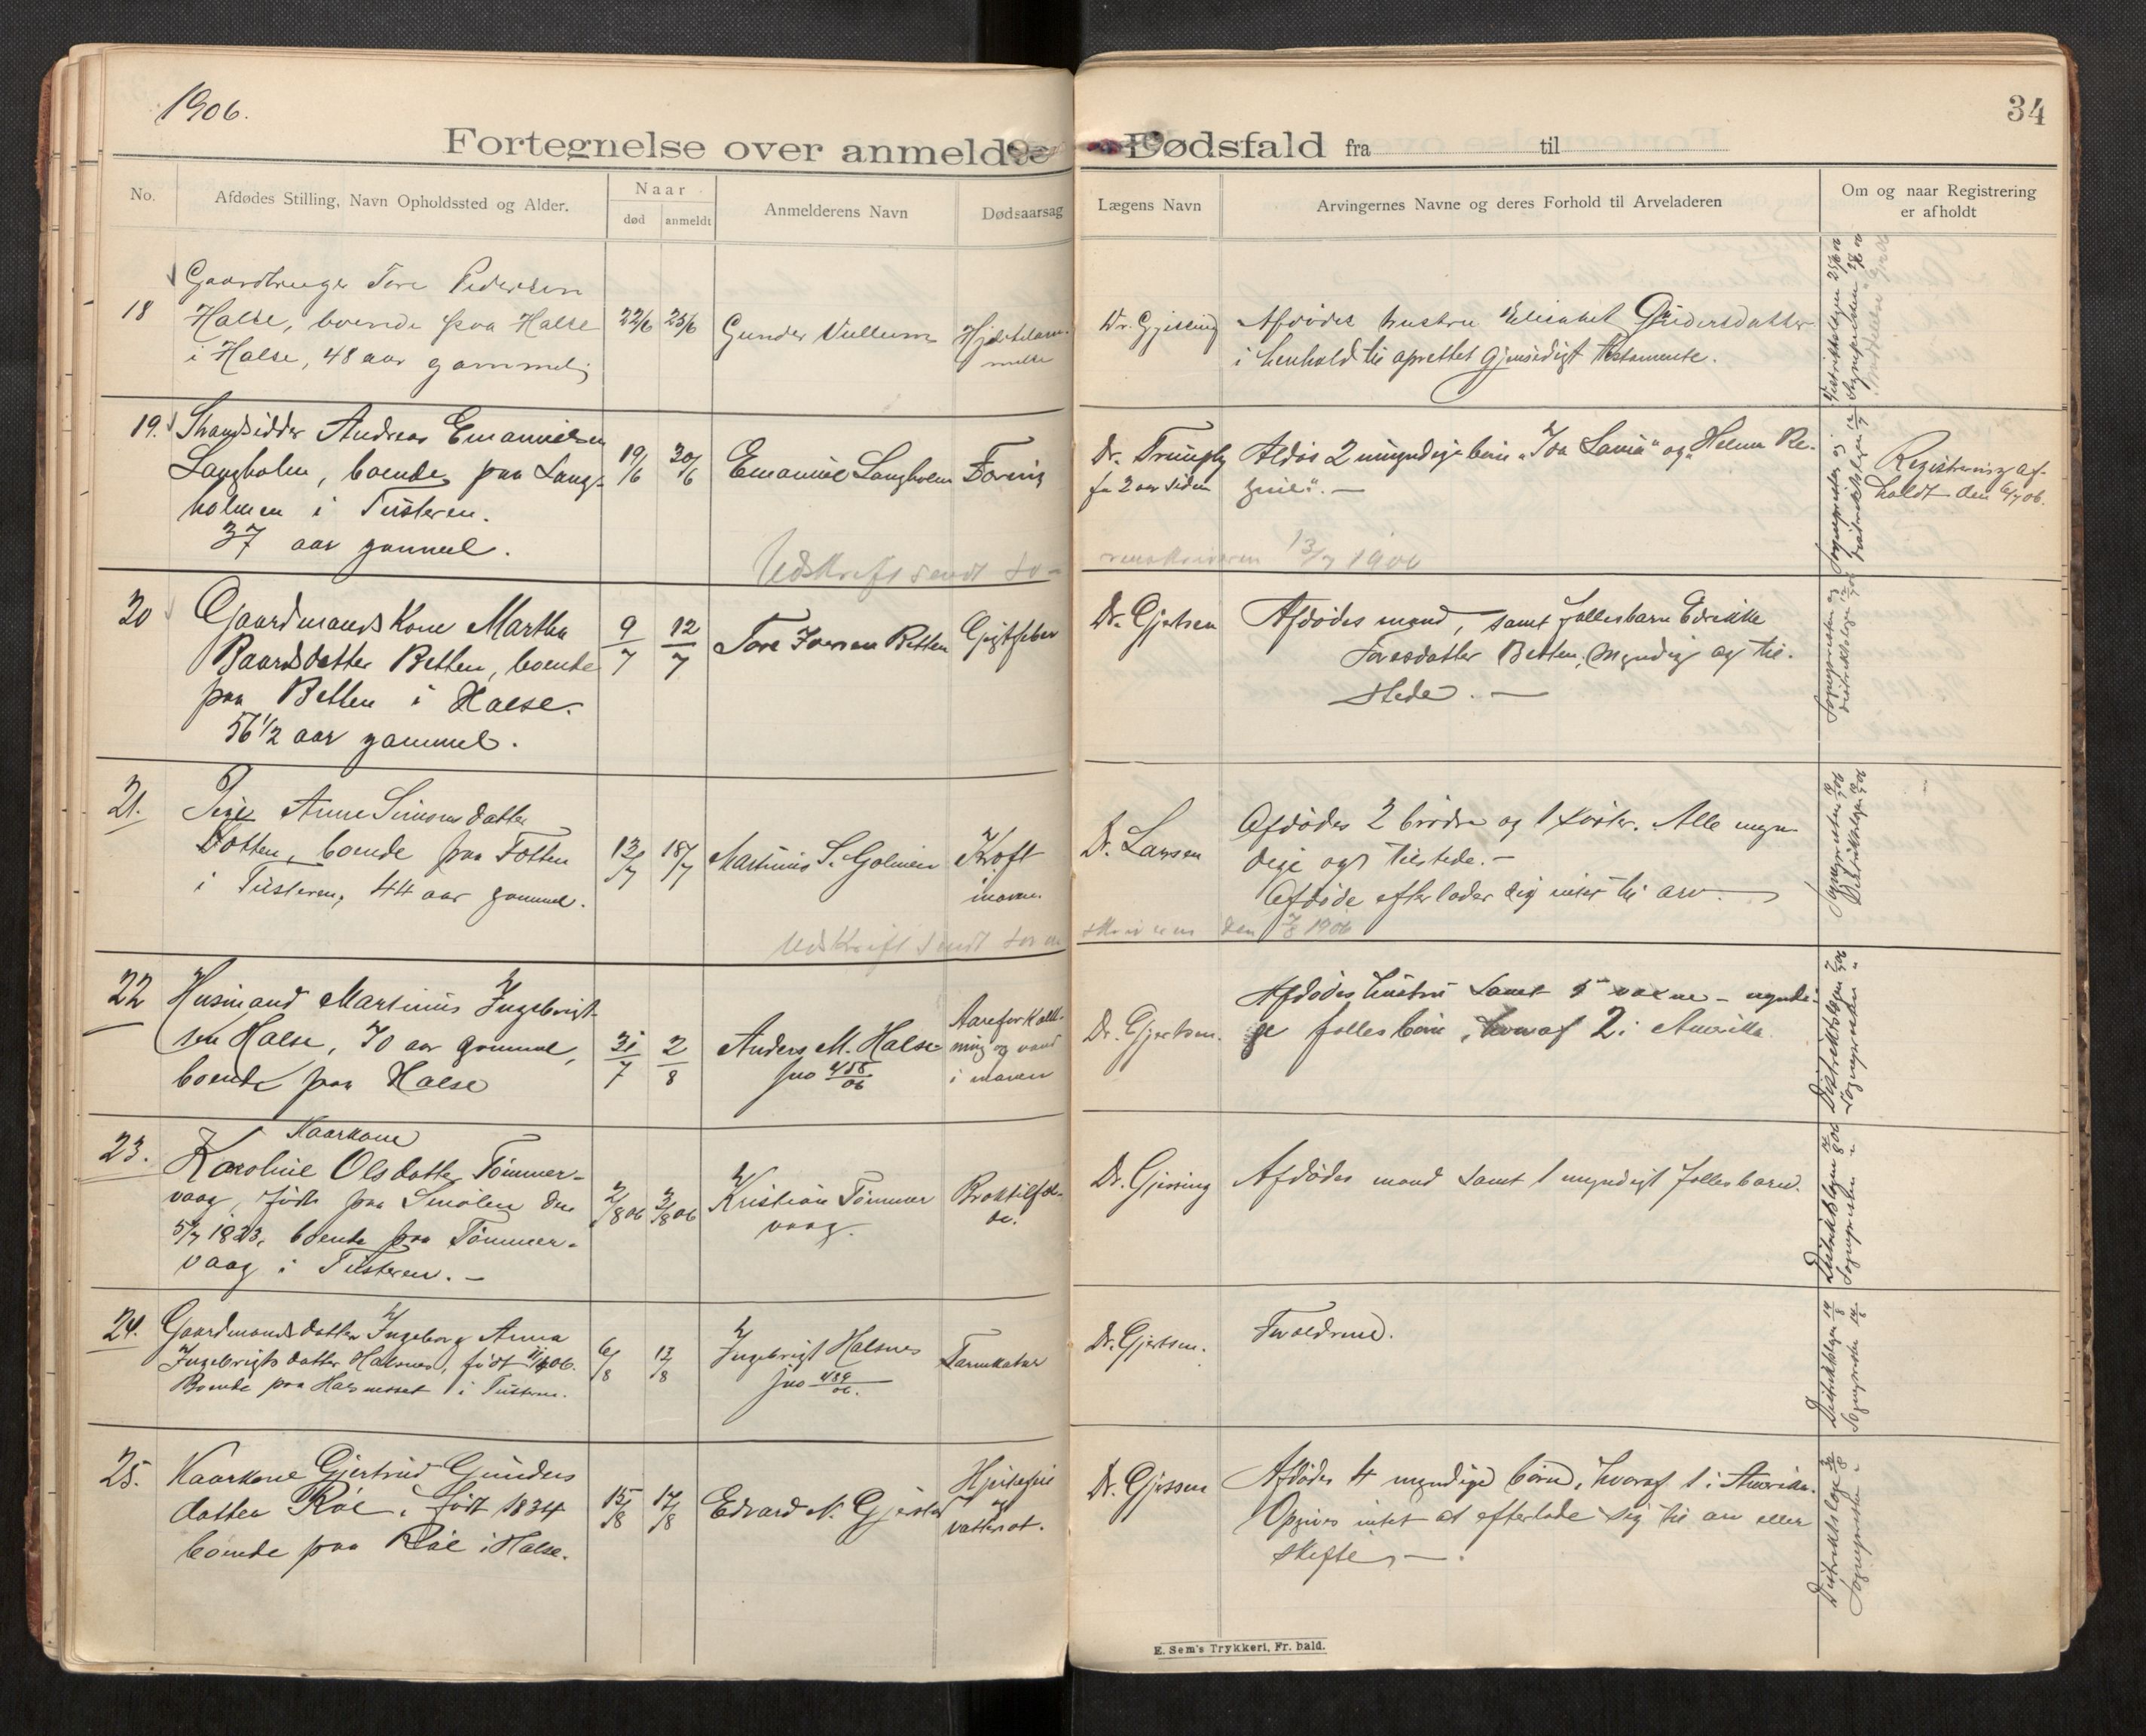 1906.
34
Fortegnelse over anmeldte Dødsfald fra til
No.
Afdødes Stilling, Navn Opholdssted og Alder.
Naar
død
anmeldt
Anmelderens Navn
Dødsaarsag
Lægens Navn
Arvingernes Navne og deres Forhold til Arveladeren
Om og naar Registrering
er afholdt
18
Gaardbruger Tore Pedersen
Halse, boende paa Halse
i Halse, 48 aar gammel
22/6
25/6
Gunder Vullum
Hjertelam-
melse
Dr. Gjessing
Afdødes hustru Elisabet Gundersdatter
i henhold til oprettet gjensidigt testamente.
19.
Strandsidder Andreas Emanuelsen
Langholm, boende paa Lang-
holmen i Tusteren.
37 aar gammel.
19/6
30/6
Emanuel Langholm
Dr.
for 2 aar siden
Afdøs 2 umyndige børn
og
Registrering af-
holdt den 6/7 06.
Udskrift sendt so-
renskriveren 13/7 1906
20
Gaardmandskone Martha
Baardsdatter Betten, boende
paa Betten i Halse.
56 1/2 aar gammel.
9/7
12/7
Tore Iversen Betten
Gigtfeber
Dr. Gjertsen
Afdødes mand, samt fællesbarn
Toresdatter Betten, myndig og til-
stede. —
21.
Pige Anne Simonsdatter
Fotten, boende paa Fotten
i Tusteren, 44 aar gammel.
13/7
18/7
Martinus S. Golmen
Kræft
i maven.
Dr. Larsen
Afdødes 2 brødre og 1 søster. Alle myn-
dige og tilstede. —
Afdøde efterlader sig intet til arv. —
Udskrift sendt soren
skriveren den 7/8 1906
22
Husmand Martinus Ingebrigt-
sen Halse, 70 aar gammel,
boende paa Halse
31/7
2/8
Anders M. Halse
jno 458/06
Aareforkalk-
ning og vand
i maven
Dr. Gjertsen.
Afdødes hustru samt 5 voxne - myndi-
ge fællesbørn, hvoraf 2 i Amerika.
23.
Kaarkone
Karoline Olsdatter Tømmer-
vaag, født paa Smølen den
5/7 1823, boende paa Tømmer-
vaag i Tusteren. —
2/8 06
3/8 06
Kristian Tømmer
vaag.
Braktilfæl-
de.
Dr. Gjessing
Afdødes mand samt 1 myndigt fællesbarn.
24.
Gaardmandsdatter Ingeborg Anna
Ingebrigtsdatter Halsnes, født
Boende paa Halsnesset i Tusteren.
6/8
13/8
Ingebrigt Halsnes
jno 484/06.
Tarmkatar
Dr. Gjertsen.
Forældrene.
25.
Kaarkone Gjertrud Gunders
datter Røe, født 1834
boende paa Røe i Halse.
15/8
17/8
Edvard N. Gjerstad
Hjertefeil
&
vattersot.
Dr.
Afdødes 4 myndige børn, hvoraf 1 i Amerika.
Opgives intet at efterlade sig til arv eller
skifte. —
Distriktslægen
Sognepresten
E. Sem's Trykkeri, Fr.hald.